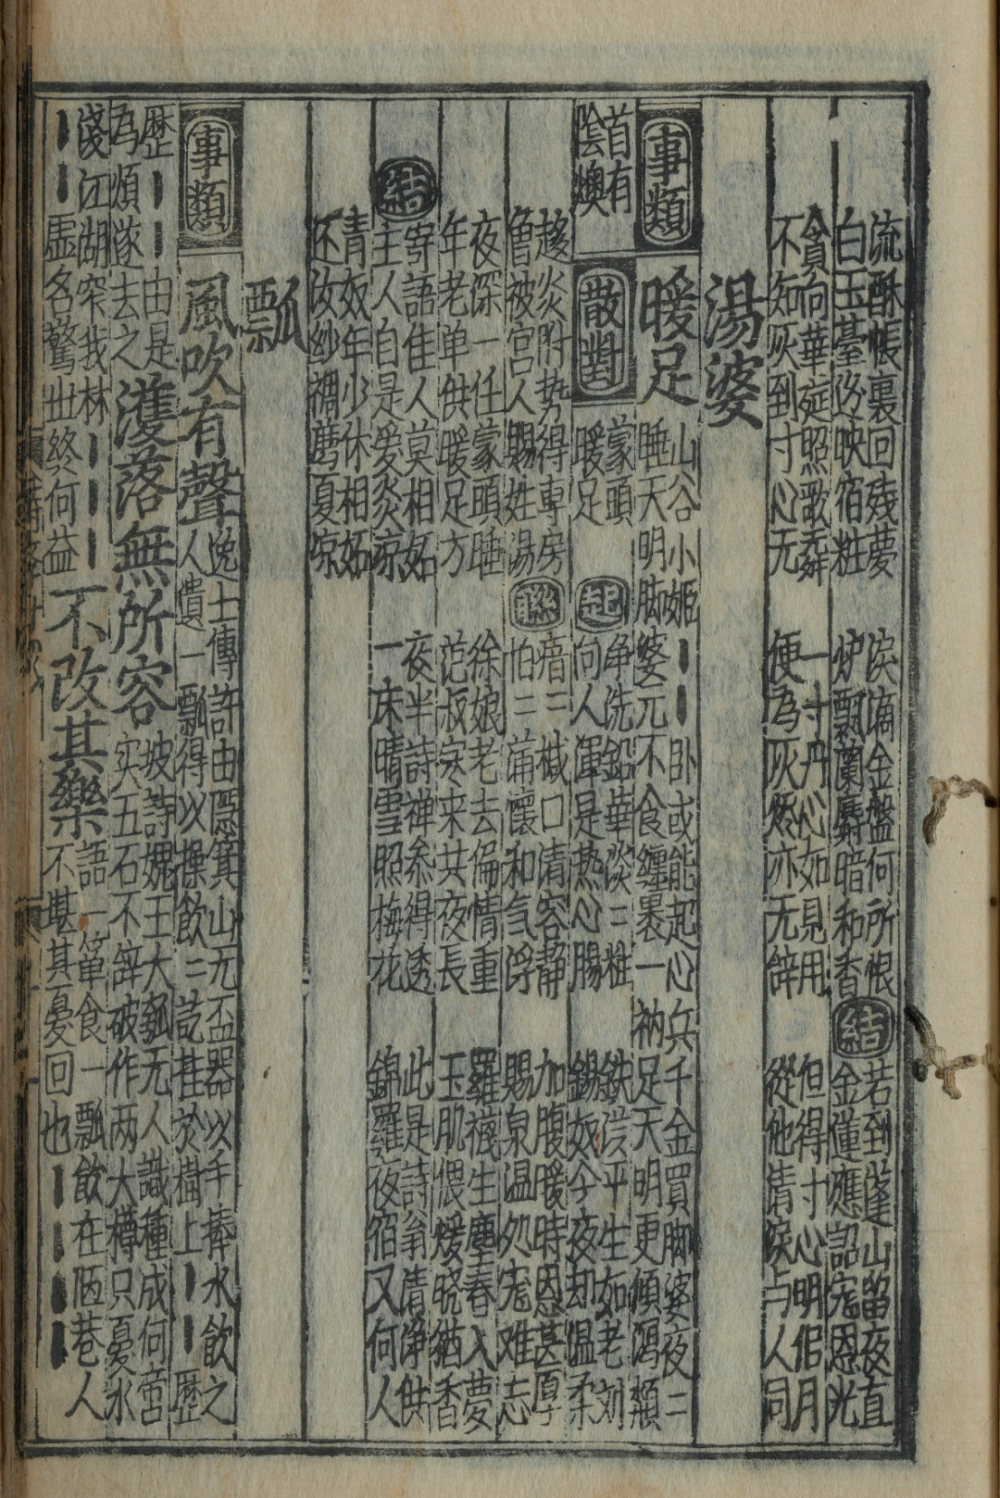 流酥帳裏回殘夢 淚滴金盤何所恨 結 若到蓬山當夜直
白玉臺汾映宿粧 炉飄蘭麝暗和香 金蓮應詔寵恩光
貪向華筵照歌舞 一寸丹心如見用 但得寸心明佀月
不知灰到寸心无 便為灰燼亦无辞 從他清淚与人同
湯婆
事類 暖足 山谷小姬||卧或能起心兵千金買脚婆夜二
睡天明脚婆元不食纏裹一衲足天明更傾瀉頮
首有
陰燠
散對 蒙頭
暖足
起 净洗鉛華淡二粧 鉄湼平生如老刘
向人渾是热心腸 錫奴今夜却温柔
趍炎附势得專房 聯 瘖二椷口清容静 加腹暖時恩甚厚
曾被宫人賜姓湯 怕二蒲懷和气浮 賜泉温处宠难忘
夜深一任蒙頭睡 徐娘老去偏情重 羅襪生塵春入夢
年老单供暖足方 范叔寒来共夜長 玉肌偎煖晓猶香
結 寄語佳人莫相妬 夜半詩禅叅得透 此是詩翁清净供
主人自是爱炎凉 一床晴雪照梅花 錦羅夜宿又何人
青奴年少休相妬
还汝紗夏凉
瓢
事類 風吹有聲 逸士傳許由隐箕山无盃器以手捧水飲之
人遺一瓢得以操飲二訖挂於樹上||歷
歷||由是
為煩遂去之
濩落無所容 坡詩媿王大瓠无人識種成何啻
实五石不辞破作两大樽只憂水
淺江湖窄我林|||
||虛名驚世終何益
不改其樂 語一箪食一瓢飲在陋巷人
不堪其憂回也||||